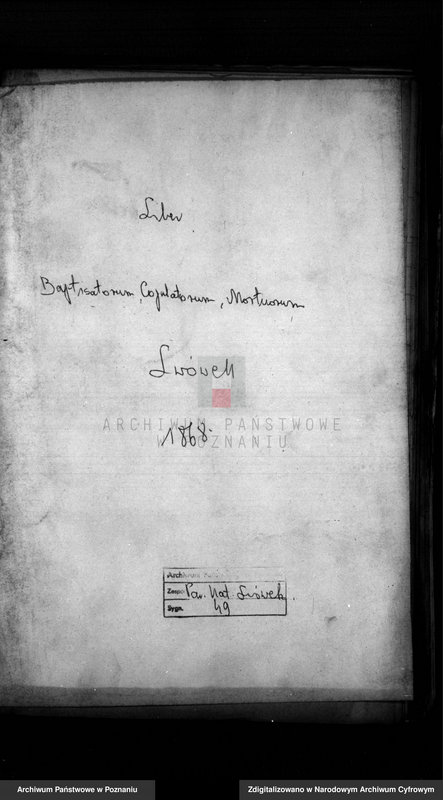 Liber
Baptisatorum, Copulatorum, Mortuorum
Lwówek
ARCHIWUM PAŃSTWOWE
W POZNANIU
1868.
Archiwum
Zespół Par. Kat. Lwówek.
Sygn. 49
Archiwum Państwowe w Poznaniu
Zdigitalizowano w Narodowym Archiwum Cyfrowym